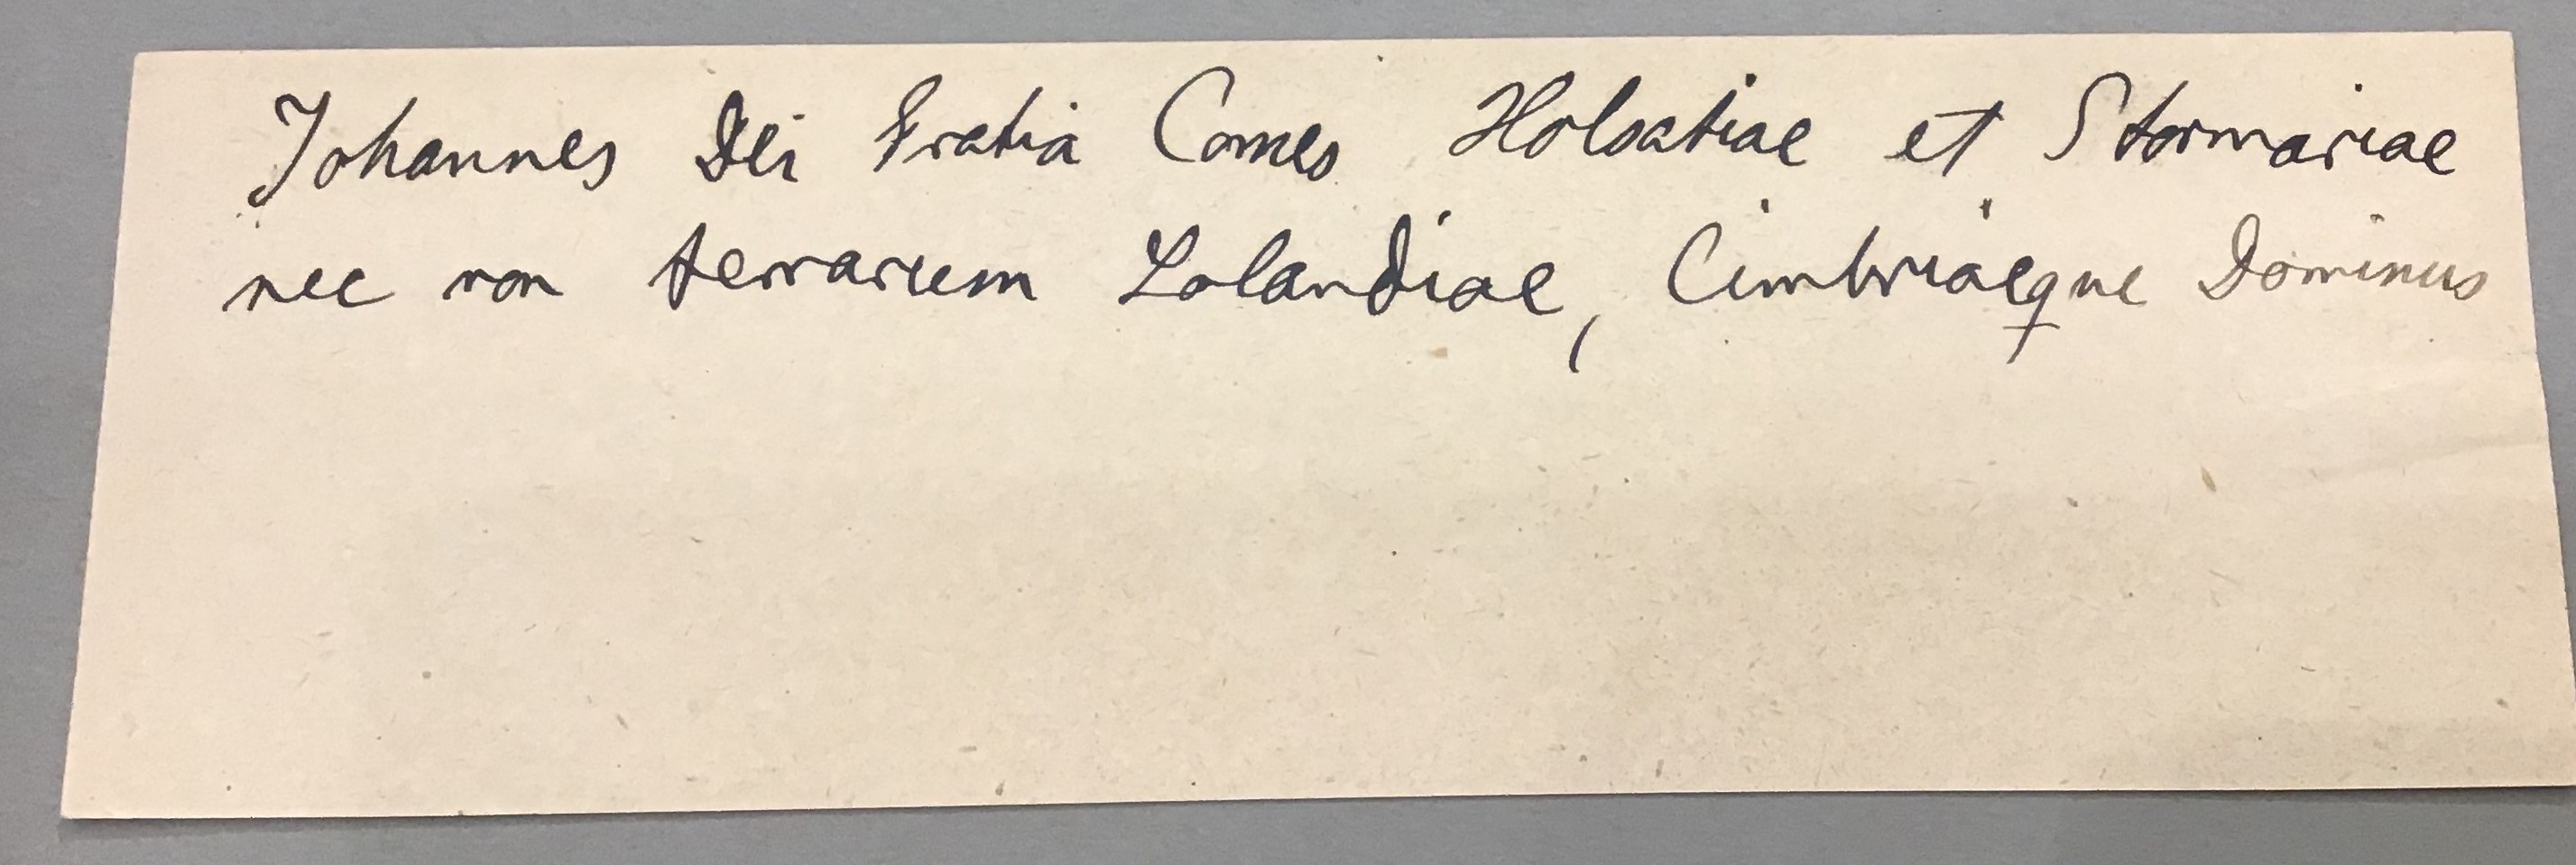 Johannes Dei Gratia Comes Holsatiae et Stormariae
nec non terrarum Lolandiae, Cimbriaeque Dominus